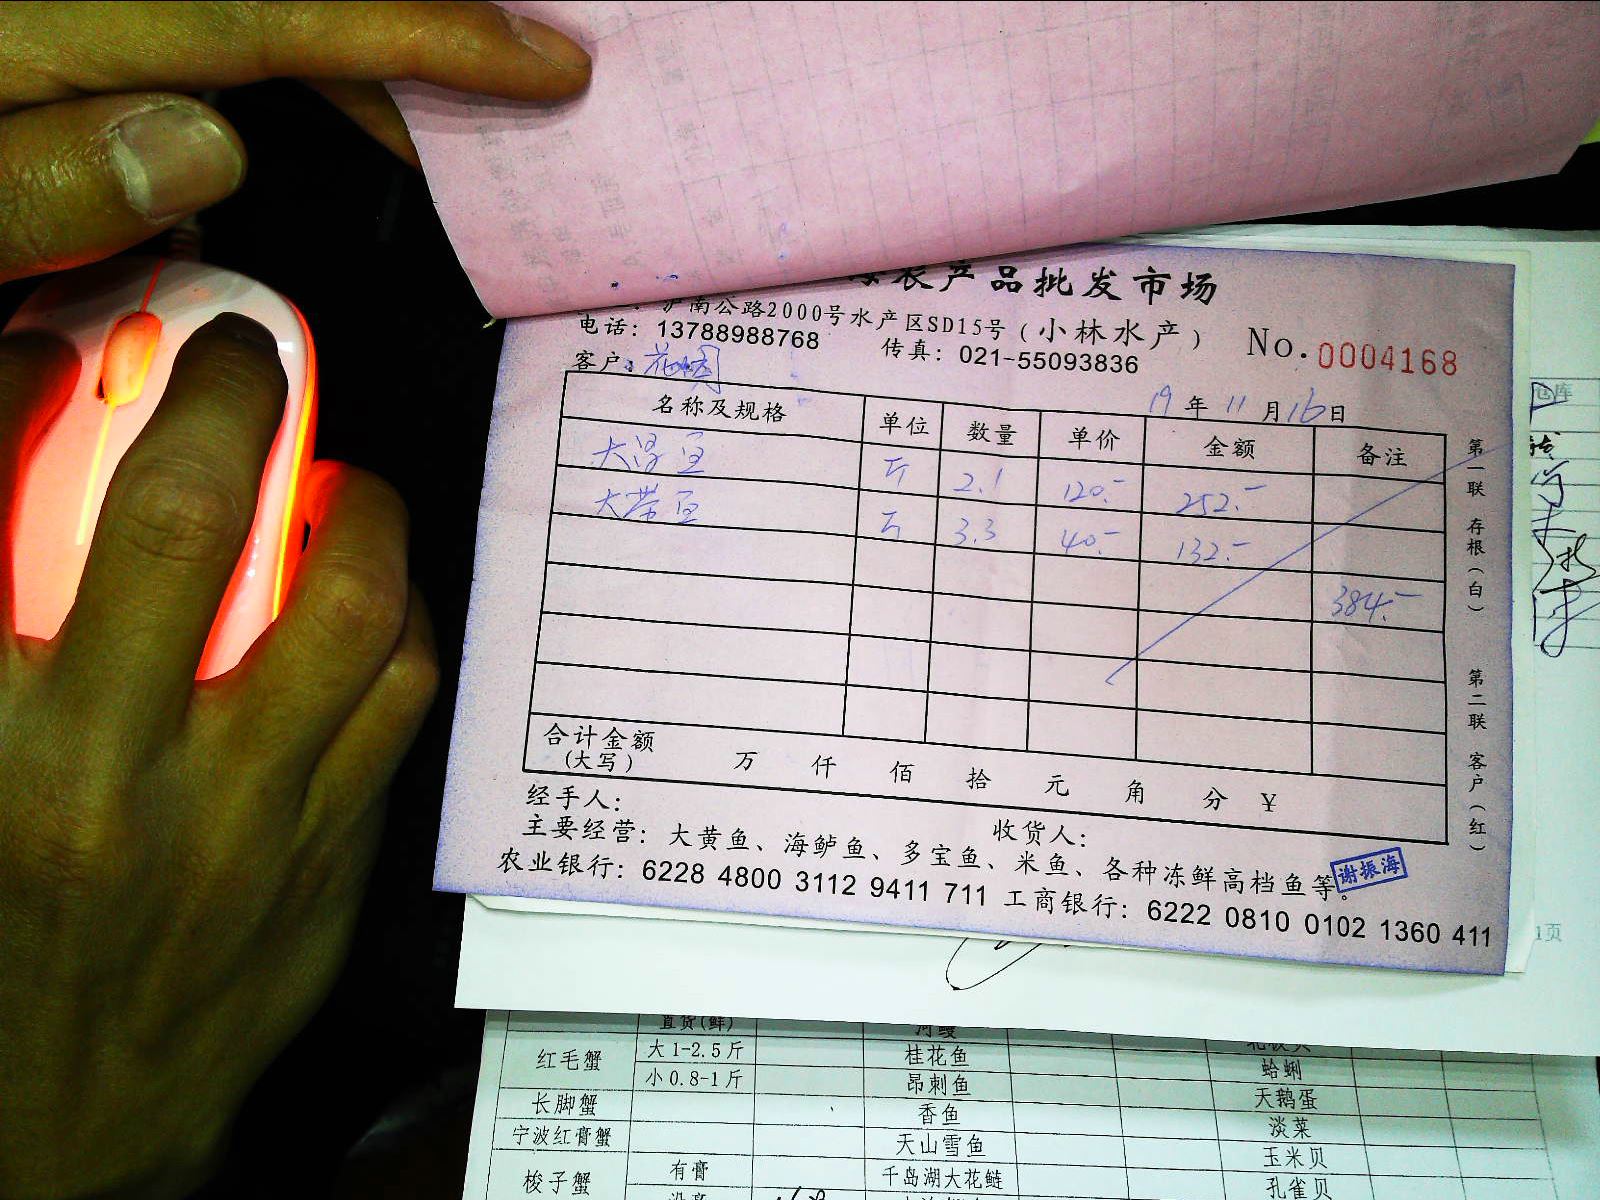 农产品批发市场
沪南公路2000号水产区SD15号(小林水产)
电话: 13788988768 传真: 021-55093836 No.0004168
客户:
19年11月16日
名称及规格 单位 数量 单价 金额 备注
大 鱼 斤 2.1 120.- 252.-
大带鱼 斤 3.3 40.- 132.-
384.-
合计金额
(大写) 万 仟 佰 拾 元 角 分 ¥
经手人: 收货人:
主要经营: 大黄鱼、海鲈鱼、多宝鱼、米鱼、各种冻鲜高档鱼等。
谢振海
农业银行: 6228 4800 3112 9411 711 工商银行: 6222 0810 0102 1360 411
第一联 存根(白) 第二联 客户(红)
库
1页
直货(鲜) 河鳗
红毛蟹 大1-2.5斤 桂花鱼 蛤蜊
小0.8-1斤 昂刺鱼 天鹅蛋
长脚蟹 香鱼 淡菜
宁波红膏蟹 天山雪鱼 玉米贝
梭子蟹 有膏 千岛湖大花鲢 孔雀贝